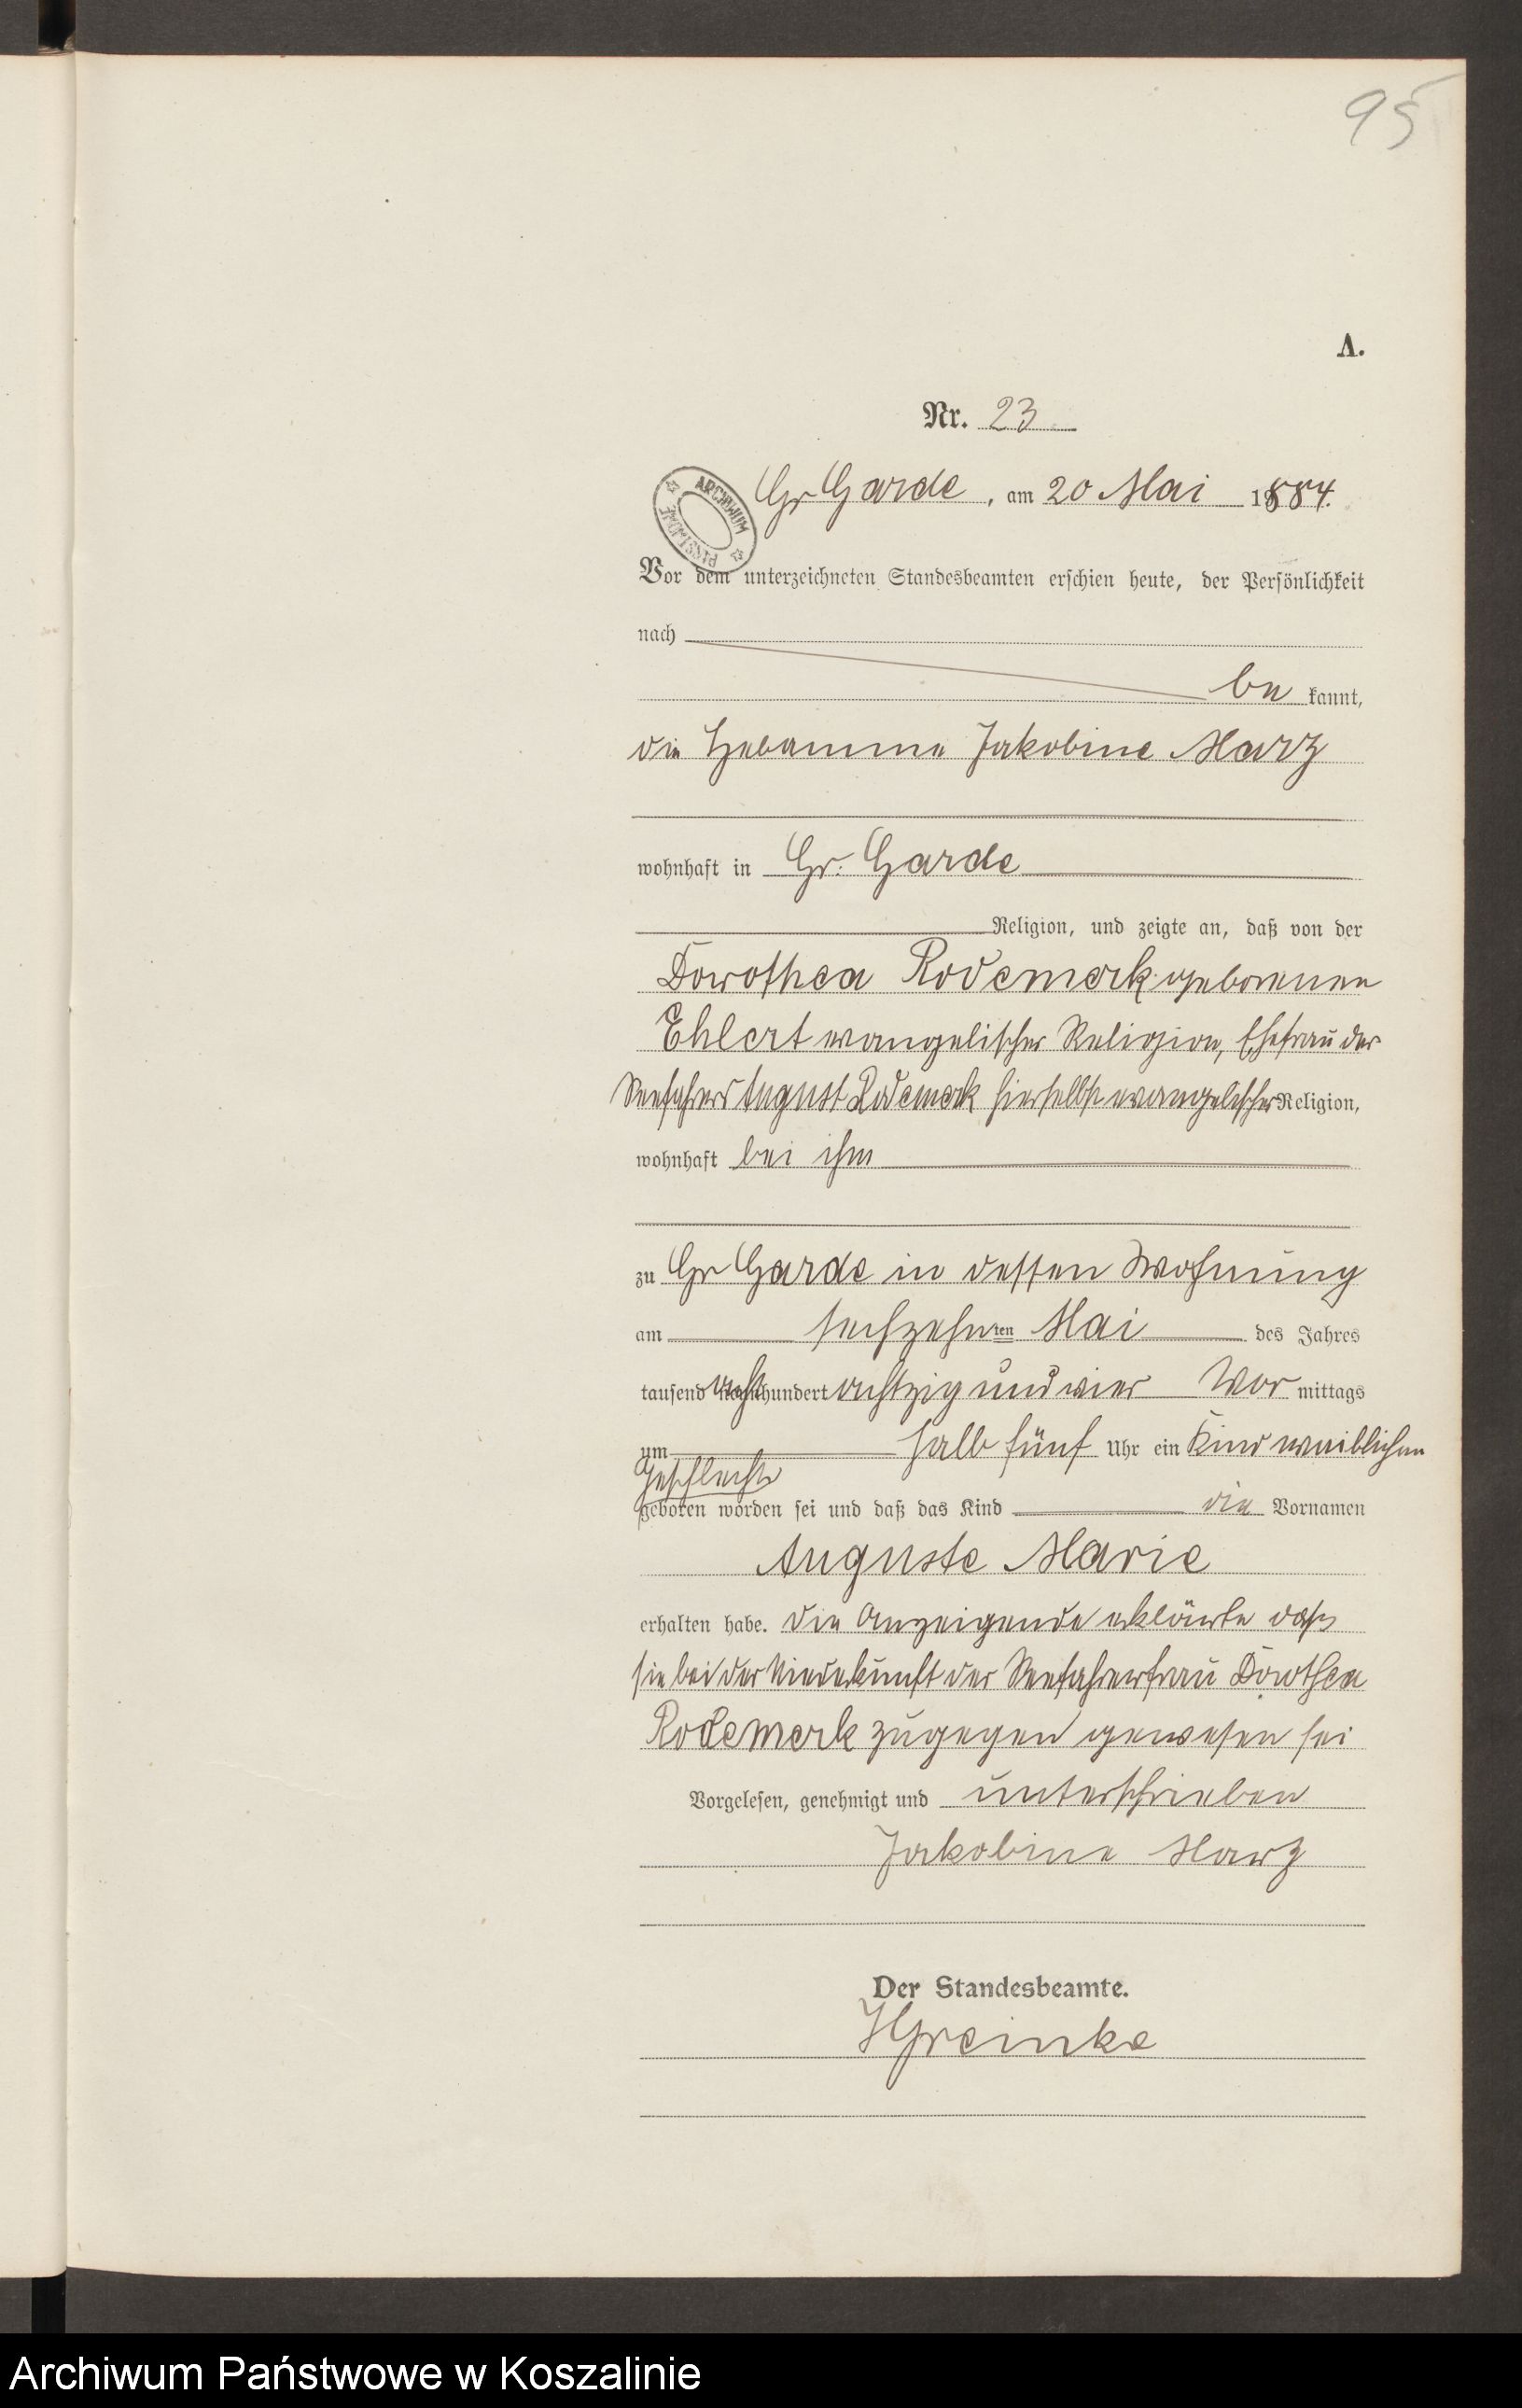 95
A.
Nr. 23
ARCHIWUM PAŃSTWOWE
Gr Garde, am 20 Mai 1884.
Vor dem unterzeichneten Standesbeamten erschien heute, der Persönlichkeit
nach
be kannt,
die Hebamme Jakobine Marz
wohnhaft in Gr. Garde
Religion, und zeigte an, daß von der
Dorothea Rodemerk geborenen
Ehlert evangelischer Religion, Ehefrau des
Seefahrers August Rodemerk hierselbst evangelischer Religion,
wohnhaft bei ihm
zu Gr Garde in dessen Wohnung
am sechzehnten Mai des Jahres
tausend acht hundert achtzig und vier Vor mittags
um halb fünf Uhr ein Kind weiblichen
Geschlechts
geboren worden sei und daß das Kind die Vornamen
Auguste Marie
erhalten habe. Die Anzeigende erklärte daß
sie bei der Niederkunft der Seefahrerfrau Dorothea
Rodemerk zugegen gewesen sei
Vorgelesen, genehmigt und unterschrieben
Jakobine Marz
Der Standesbeamte.
Greinke
Archiwum Państwowe w Koszalinie